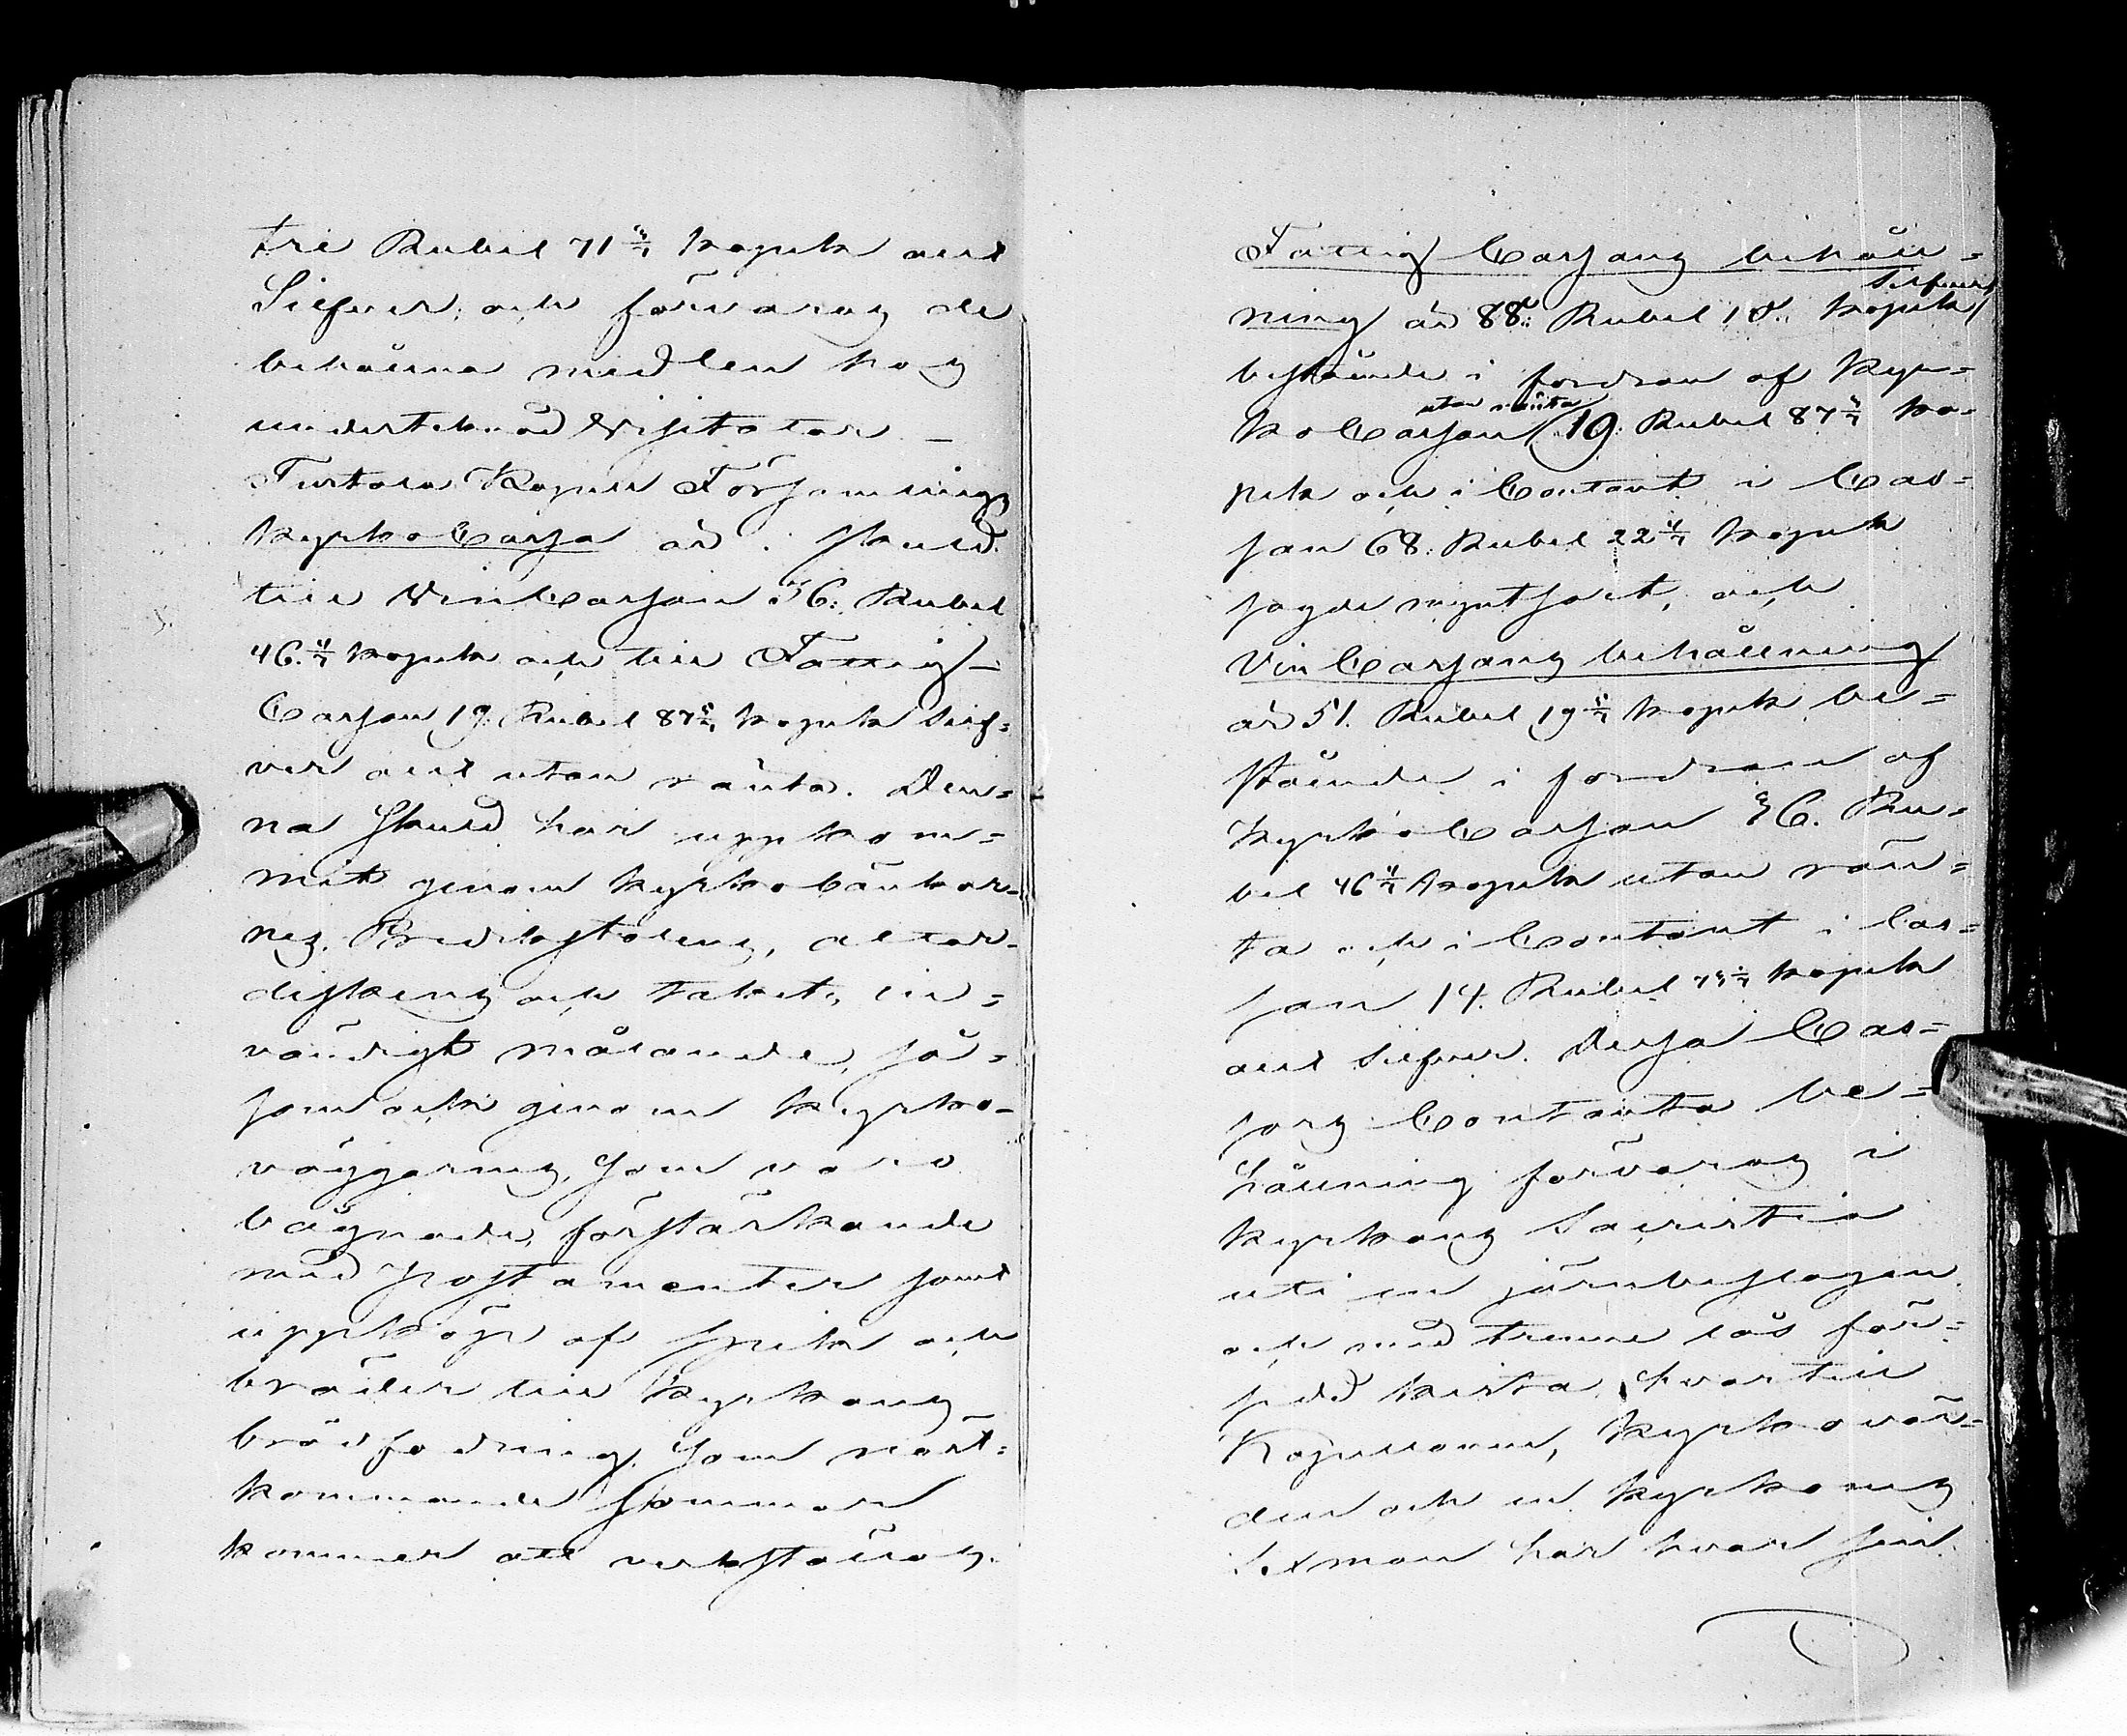 tre Rubel 71 3/7 kopek allt
Silfver, och förvaras de
behållna medlen hos
undertecknad Visitator —
Turtola Kapell Församlings
Kyrko Cassa är i skuld
till Vin Cassan 36. Rubel
46. 4/7 kopek och till Fattig-
Cassan 19. Rubel 87 5/7 kopek Silf-
ver allt utan ränta. Den-
na skuld har uppkom-
mit genom kyrkobänkar-
nes, Predikstolens, altar-
diskens och takets, in-
vändigt målande, så-
som ock genom kyrko-
väggarnes, som voro
bågnade, förstärkande
med postamenter samt
uppköp af spik och
bräder till kyrkans
brädfodring, som näst-
kommande sommar
kommer att verkställas.
Fattig Cassans behåll-
ning är 88. Rubel 10. kopek Silfver
bestående i fordran af Kyr-
ko Cassan utan ränta 19. Rubel 87 3/7 ko-
pek och i Contant i Cas-
san 68. Rubel 22 4/7 kopek
sagde myntsort, och
Vin Cassans behållning
är 51. Rubel 19 5/7 kopek be-
stående i fordran af
Kyrko Cassan 36. Ru-
bel 46 4/7 kopek utan rän-
ta och i Contant i Cas-
san 14. Rubel 73 1/7 kopek
allt Silfver. Dessa Cas-
sors Contanta be-
hållning förvaras i
kyrkans Sacristia
uti en järnbeslagen
och med trenne lås för-
sedd kista, hvartill
Kapellanen, Kyrkovär-
den och en kyrkones
Sexman har hvar sin